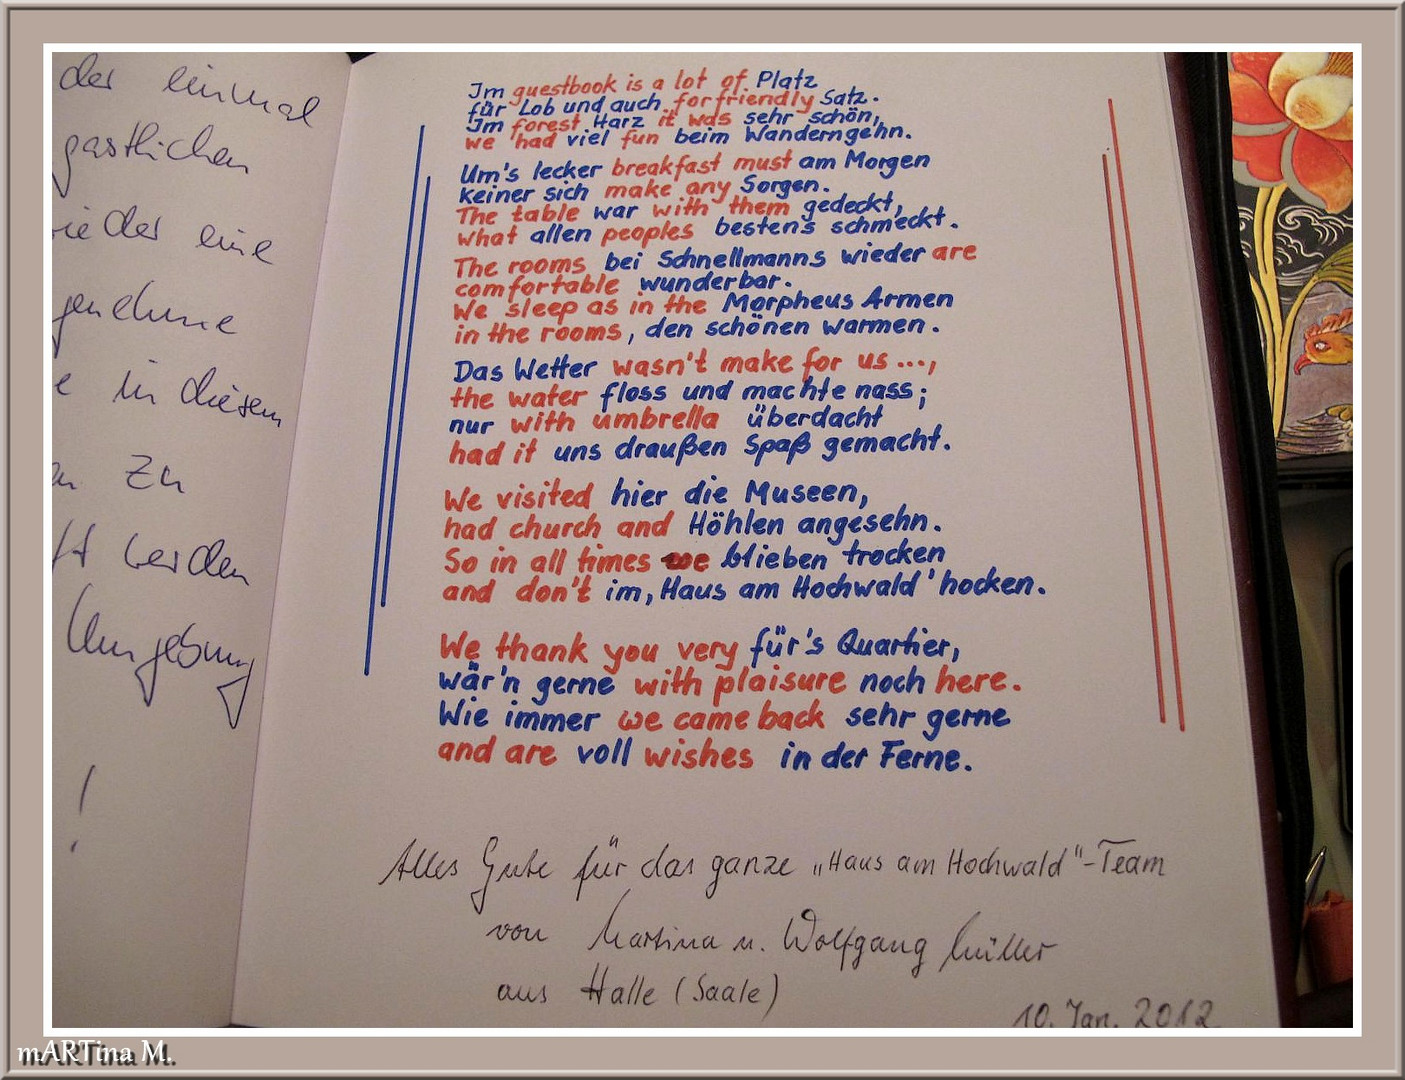 der einmal
gastlichen
eine
in diesem
zu
werden
Umgebung
!
Im guestbook is a lot of Platz
für Lob und auch for friendly Satz.
Im forest Harz it was sehr schön,
we had viel fun beim Wanderngehn.
Um's lecker breakfast must am Morgen
keiner sich make any Sorgen.
The table war with them gedeckt,
what allen peoples bestens schmeckt.
The rooms bei Schnellmanns wieder are
comfortable wunderbar.
We sleep as in the Morpheus Armen
in the rooms, den schönen warmen.
Das Wetter wasn't make for us ...,
the water floss und machte nass;
nur with umbrella überdacht
had it uns draußen Spaß gemacht.
We visited hier die Museen,
had church and Höhlen angesehn.
So in all times we blieben trocken
and don't im, Haus am Hochwald' hocken.
We thank you very für's Quartier,
wär'n gerne with plaisure noch here.
Wie immer we came back sehr gerne
and are voll wishes in der Ferne.
Alles Gute für das ganze „Haus am Hochwald"-Team
von Martina u. Wolfgang Müller
aus Halle (Saale)
10. Jan. 2012
mARTina M.